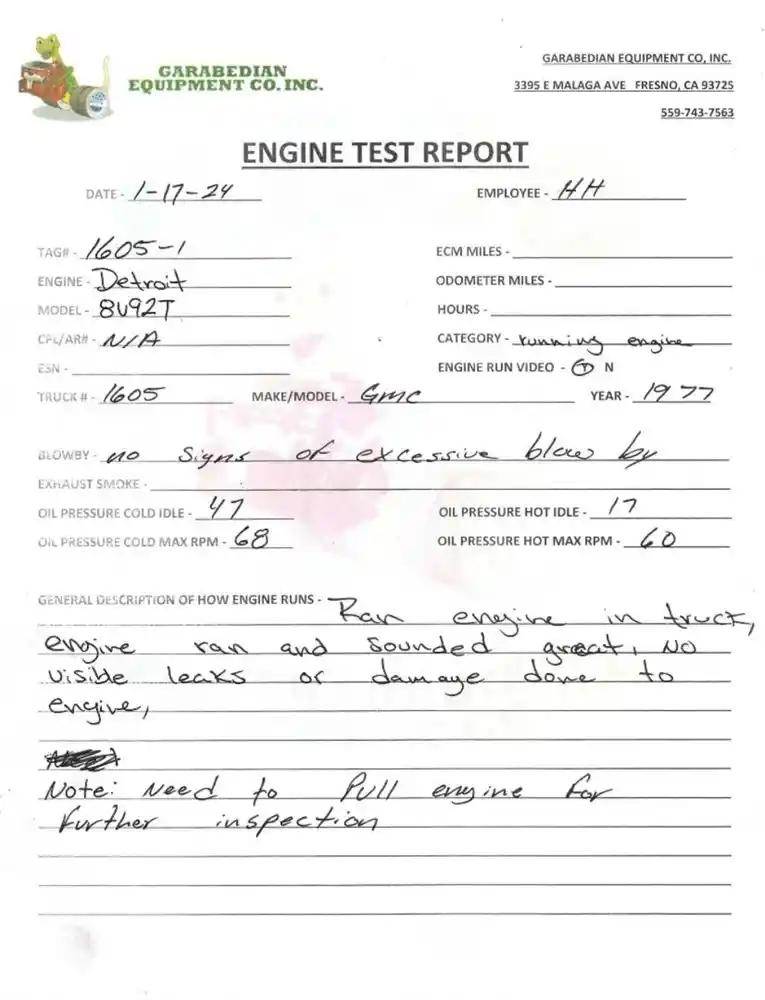 GARABEDIAN
EQUIPMENT CO. INC.
GARABEDIAN EQUIPMENT CO, INC.
3395 E MALAGA AVE FRESNO, CA 93725
559-743-7563
ENGINE TEST REPORT
DATE - 1-17-24 EMPLOYEE - HH
TAG# - 1605-1 ECM MILES -
ENGINE - Detroit ODOMETER MILES -
MODEL - 8V92T HOURS -
CPL/AR# - N/A CATEGORY - running engine
ESN - ENGINE RUN VIDEO - Y N
TRUCK # - 1605 MAKE/MODEL - GMC YEAR - 1977
BLOWBY - no signs of excessive blow by
EXHAUST SMOKE -
OIL PRESSURE COLD IDLE - 47 OIL PRESSURE HOT IDLE - 17
OIL PRESSURE COLD MAX RPM - 68 OIL PRESSURE HOT MAX RPM - 60
GENERAL DESCRIPTION OF HOW ENGINE RUNS - Ran engine in truck,
engine ran and sounded great, NO
visible leaks or damage done to
engine,
Note: Need to Pull engine for
further inspection